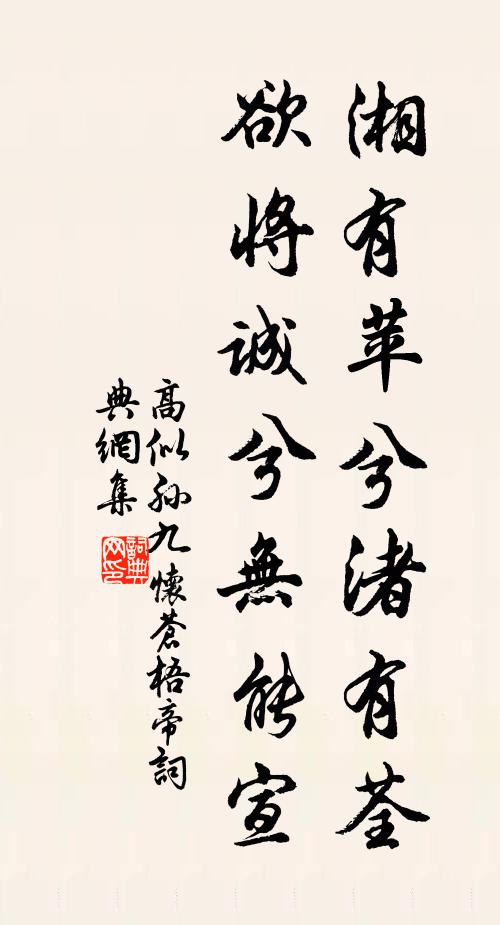 湘有苹兮渚有荃
欲將誠兮無能宣
高似孙九懷蒼梧帝詞
典網集
詞典
网印